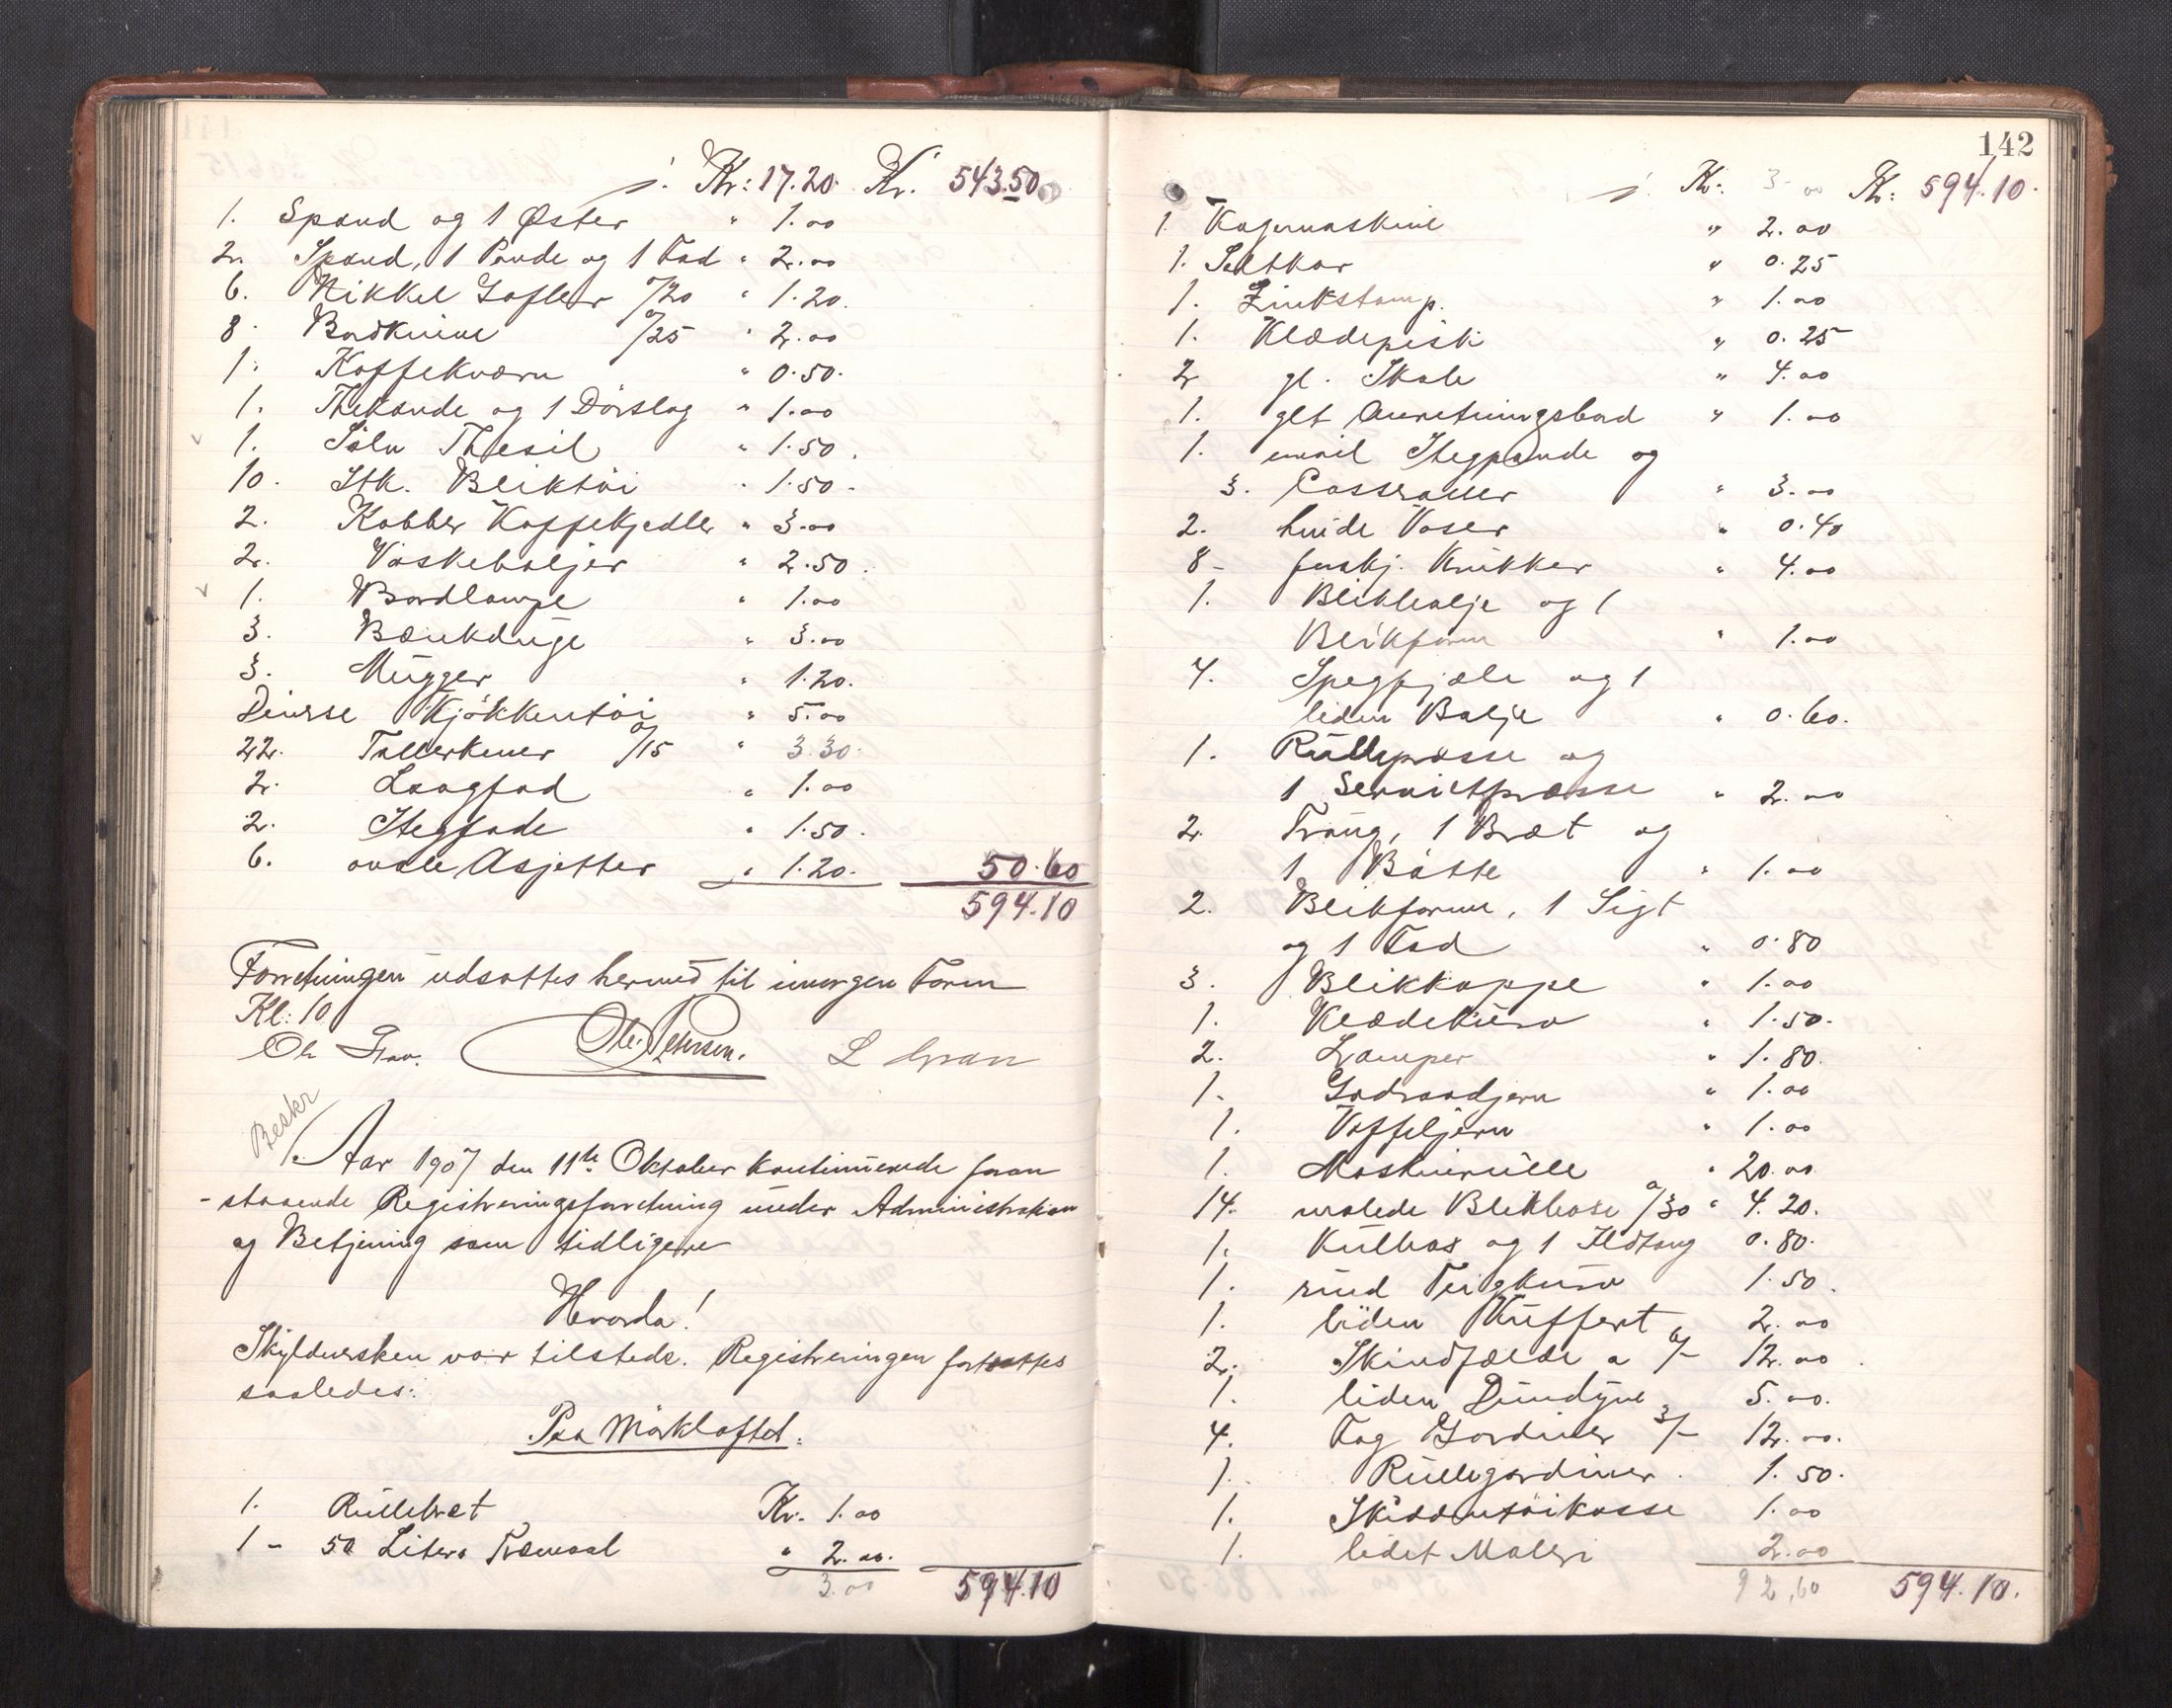 /. Kr: 17.20. Kr. 543.50
1. Spand og 1 Øster " 1.00
2. Spand, 1 Pande og 1 Fad " 2.00
6. Nikkel Gafler a/20 " 1.20.
8. Bordknive a/25 " 2.00
1. Kaffekværn " 0.50.
1. Thekande og 1 Dörslag " 1.00
1. Sölv Thesil " 1.50.
10. Stk. Bliktöi " 1.50.
2. Kobber Kaffekjedler " 3.00
2. Vaskebaljer " 2.50.
1. Bordlampe " 1.00
3. Bænkduge " 3.00
3. Mugger " 1.20.
Diverse Kjökkentöi " 5.00
22. Tallerkener a/15 " 3.30.
2. Laagfad " 1.00
2. Stegfade " 1.50.
6. ovale Asjetter " 1.20. 50.60
594.10
Forretningen udsattes hermed til imorgen Form
Kl: 10
Ole Petersen. L Gran
Beskr
Aar 1907 den 11te Oktober kontinuerede foran
-staaende Registreringsforretning under Administration
og Betjening som tidligere
Hvorda!
Skyldnersken var tilstede. Registreringen fortsattes
saaledes:
Paa Mörkloftet:
1. Rullebret Kr. 1.00
1 - 50 Liters Træmaal " 2.00.
3.00 594.10
142
/. Kr: 3.00 Kr: 594.10.
1. Kagemaskine " 2.00
1. Saltkar " 0.25
1. Zinkstamp. " 1.00
1. Klædepisk " 0.25
2 gl. Skale " 4.00
1. glt Anretningsbord " 1.00
1. email Stegpande og
3. Casseroller " 3.00
2. hvide Vaser " 0.40
8 - forskj. Krukker " 4.00
1. Blikbalje og 1
Blikform " 1.00
4. Spegfjæle og 1
liden Balje " 0.60.
1. Rullepresse og
1 Servietpresse " 2.00
2. Traug, 1 Bræt og
1 Bötte " 1.00
2. Blikforme, 1 Sigt
og 1 Fad " 0.80
3. Blikkoppe " 1.00
1. Klædekurv " 1.50.
2. Lamper " 1.80.
1. Godraadjern " 1.00
1. Vaffeljern " 1.00
1. Maskinrulle " 20.00
14. malede Blikbose a/30 " 4.20.
1. Kulbox og 1 Ildtang 0.80.
1. rund Teigkurv 1.50.
1. liden Kuffert 2.00
2. Skindfælde a 6/- 12.00.
1. liden Dundyne 5.00.
4. Fag Gardiner 3/- 12.00.
1. Rullegardiner. 1.50.
1. Skiddentöikasse 1.00
1. lidet Maleri 2.00
92,60 594.10.